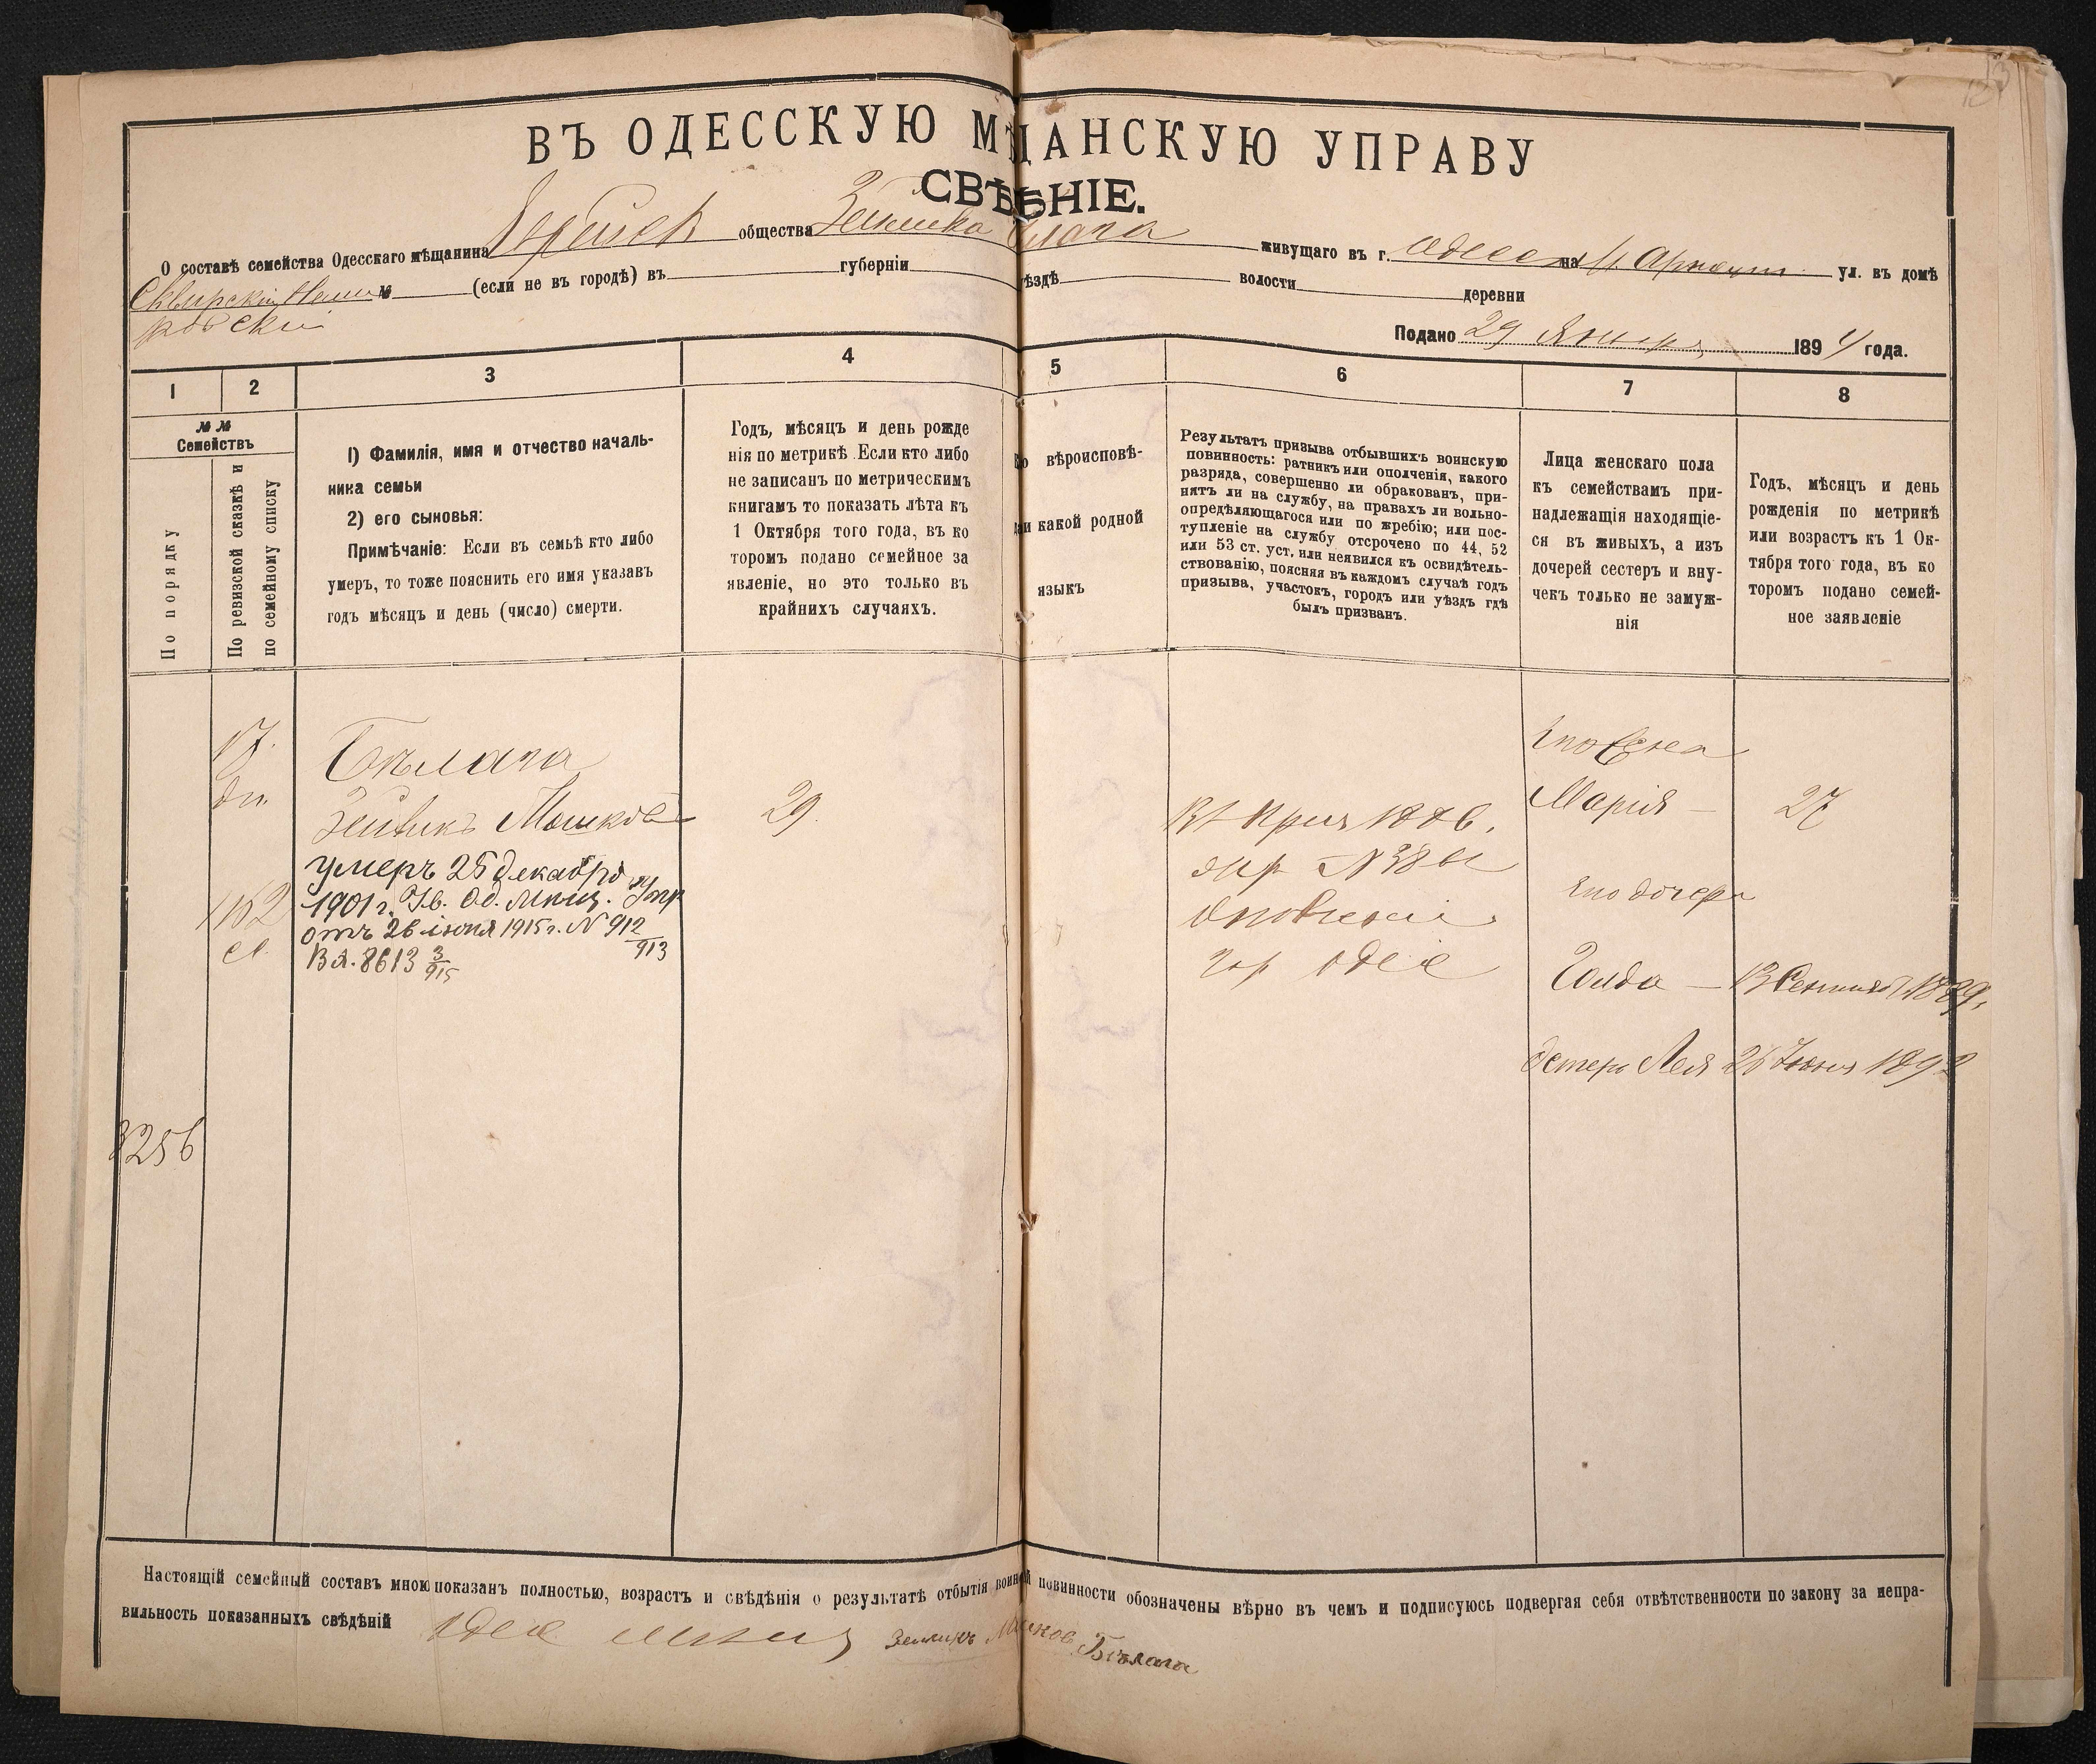 ВЪ ОДЕССКУЮ МѢЩАНСКУЮ УПРАВУ
СВѢДѢНІЕ.
О составѣ семейства Одесскаго мѣщанина общества живущаго въ г. Одессѣ на ул. въ домѣ
№ (если не въ городѣ) въ губерніи уѣздѣ волости деревни
Подано 29 Января 1894 года.
1 2 3 4 5 6 7 8
№ №
Семействъ
По порядку
По ревизской сказкѣ и
по семейному списку
1) Фамилія, имя и отчество началь-
ника семьи
2) его сыновья:
Примѣчаніе: Если въ семьѣ кто либо
умеръ, то тоже пояснить его имя указавъ
годъ мѣсяцъ и день (число) смерти.
Годъ, мѣсяцъ и день рожде
нія по метрикѣ. Если кто либо
не записанъ по метрическимъ
книгамъ то показать лѣта къ
1 Октября того года, въ ко
торомъ подано семейное за
явленіе, но это только въ
крайнихъ случаяхъ.
вѣроисповѣ-
и какой родной
языкъ
Результатъ призыва отбывшихъ воинскую
повинность: ратникъ или ополченія, какого
разряда, совершенно ли обракованъ, при-
нятъ ли на службу, на правахъ ли вольно-
опредѣляющагося или по жребію; или пос-
тупленіе на службу отсрочено по 44, 52
или 53 ст. уст. или неявился къ освидѣтель-
ствованію, поясняя въ каждомъ случаѣ годъ
призыва, участокъ, городъ или уѣздъ гдѣ
былъ призванъ.
Лица женскаго пола
къ семействамъ при-
надлежащія находящіе-
ся въ живыхъ, а изъ
дочерей сестеръ и вну-
чекъ только не замуж-
нія
Годъ, мѣсяцъ и день
рожденія по метрикѣ
или возрастъ къ 1 Ок-
тября того года, въ ко
торомъ подано семей-
ное заявленіе
17.
Бѣлага
Зейликъ Мошковъ
29.
умеръ 25 декабря
1901 г. Ув. Од. Мѣщ. Упр
отъ 26 іюня 1915 г. N 912/913
Вх. 8613 3/915
1152
3256
N 38
гор
его жена
Марія — 27
его дочери
Голда — 13 Сентяб 1889
Эстеръ Лея 26 Іюня 1892
Настоящій семейный составъ мною показанъ полностью, возрастъ и свѣдѣнія о результатѣ отбытія воинской повинности обозначены вѣрно въ чемъ и подписуюсь подвергая себя отвѣтственности по закону за непра-
вильность показанныхъ свѣдѣній
Зейликъ Мошковъ Бѣлага